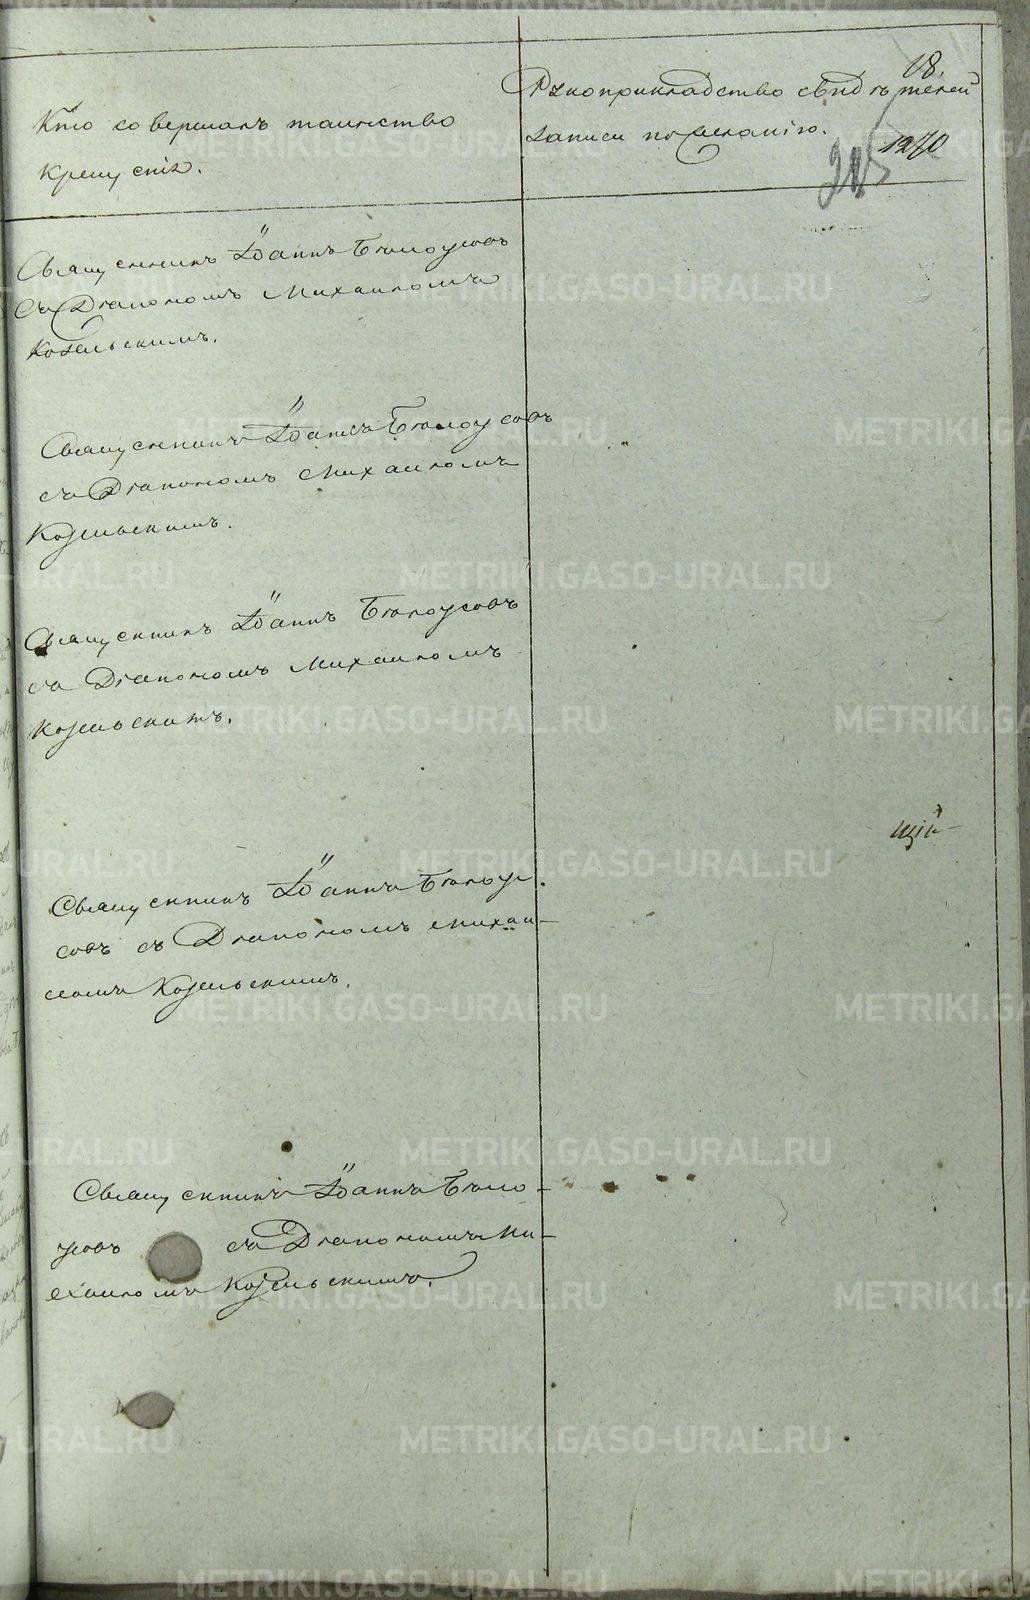 18.
Кто совершалъ таинство
крещенія.
Рукоприкладство свидѣтелей
записи по желанію.
1270
Священникъ Іоаннъ Бѣлоусовъ
съ Діакономъ Михаиломъ
Козельскимъ.
Священникъ Іоаннъ Бѣлоусовъ
съ Діакономъ Михаиломъ
Козельскимъ.
Священникъ Іоаннъ Бѣлоусовъ
съ Діакономъ Михаиломъ
Козельскимъ.
щій
Священникъ Іоаннъ Бѣлоу-
совъ съ Діакономъ Михаи-
ломъ Козельскимъ.
Священникъ Іоаннъ Бѣло-
усовъ съ Діакономъ Ми-
хаиломъ Козельскимъ.
METRIKI.GASO-URAL.RU